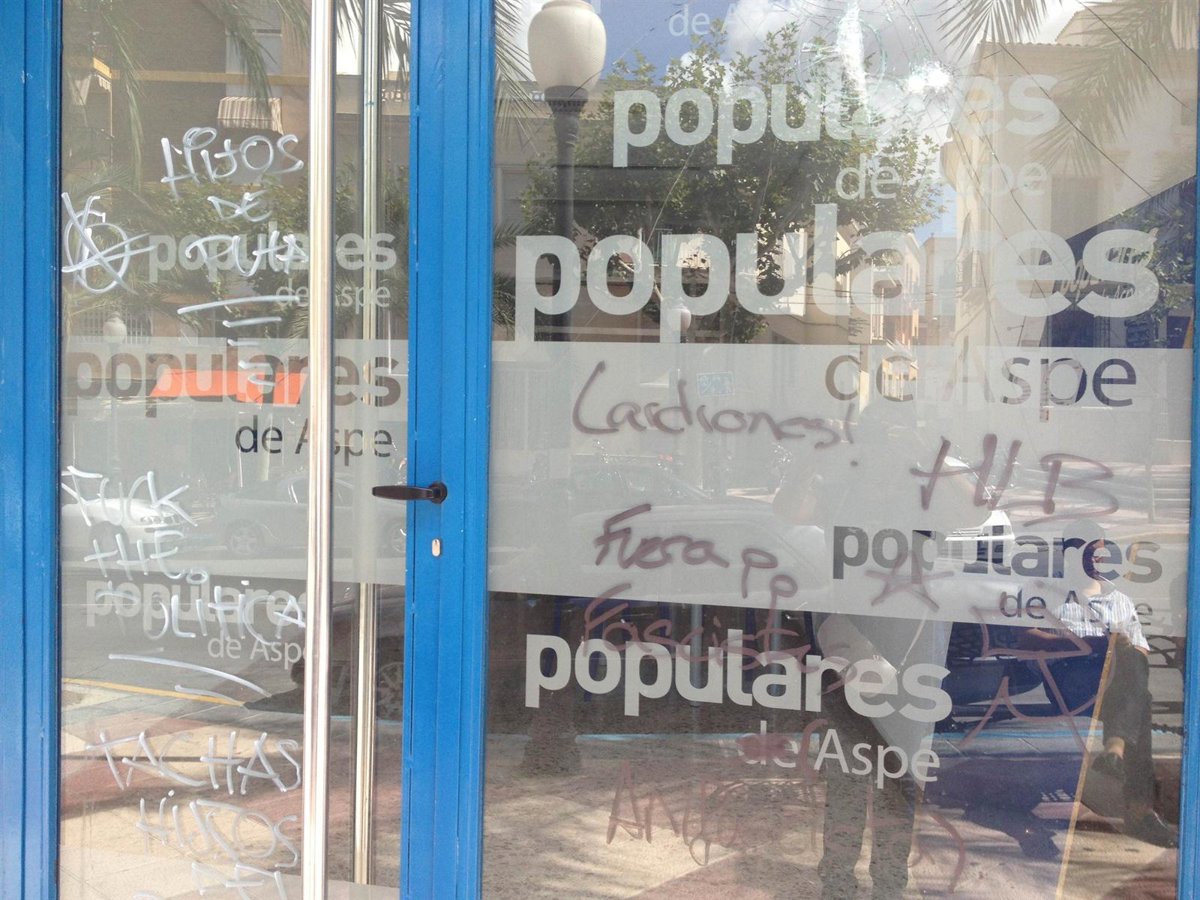 de Aspe
populares
de Aspe
populares
de Aspe
populares
de Aspe
populares
de Aspe
HIJOS
DE
PUTA
populares
de Aspe
populares
de Aspe
FUCK
THE
POLITICA
populares
de Aspe
Lardrones!
HLB
Fuera pp
Fascistas
TACHAS
HIJOS
DE